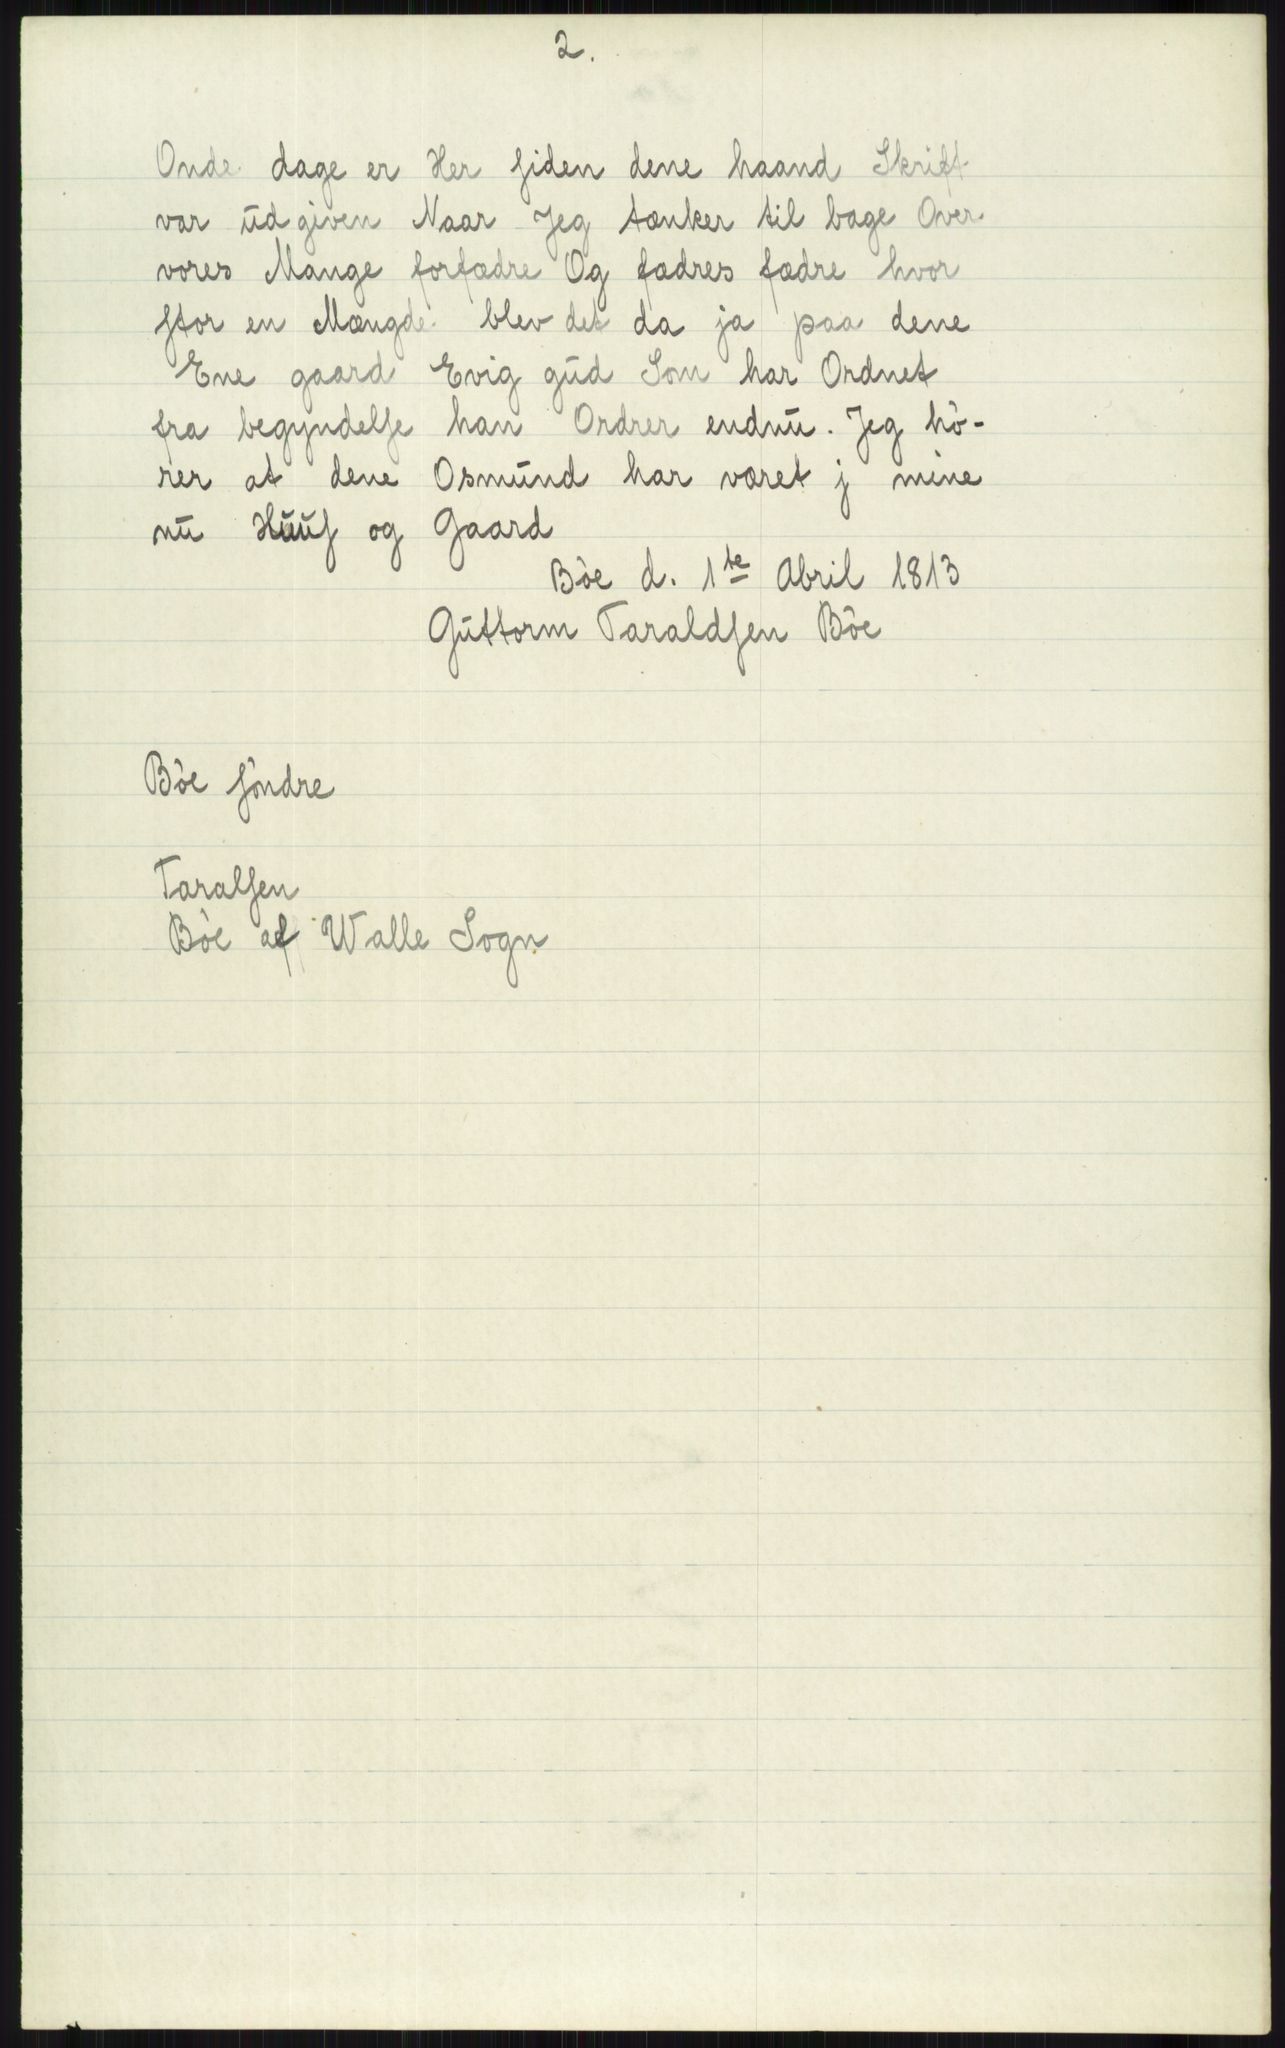 2.
Onde dage er Her siden dene haand Skrift
var udgiven Naar Jeg tænker til bage Over
vores Mange forfædre Og fædres fædre hvor
stor en Mængde blev det da ja paa dene
Ene gaard Evig gud Som har Ordnet
fra begyndelse han Ordrer endnu. Jeg hò-
rer at dene Osmund har været j mine
nu Huus og Gaard
Bòe d. 1te Abril 1813
Guttorm Taraldsen Bòe
Bòe sòndre
Taralsen
Bòe af Walle Sogn